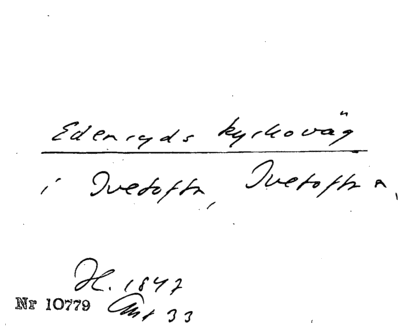 Edenryds kyrkoväg
i Ivetofta, Ivetofta,
H. 1847
Nr 10779 Ant 33